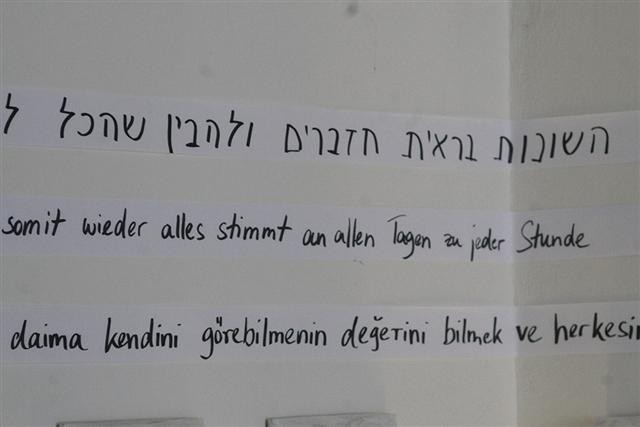 השונות בראית הדברים ולהבין שהכל ל
somit wieder alles stimmt an allen Tagen zu jeder Stunde
daima kendini görebilmenin değerini bilmek ve herkesin